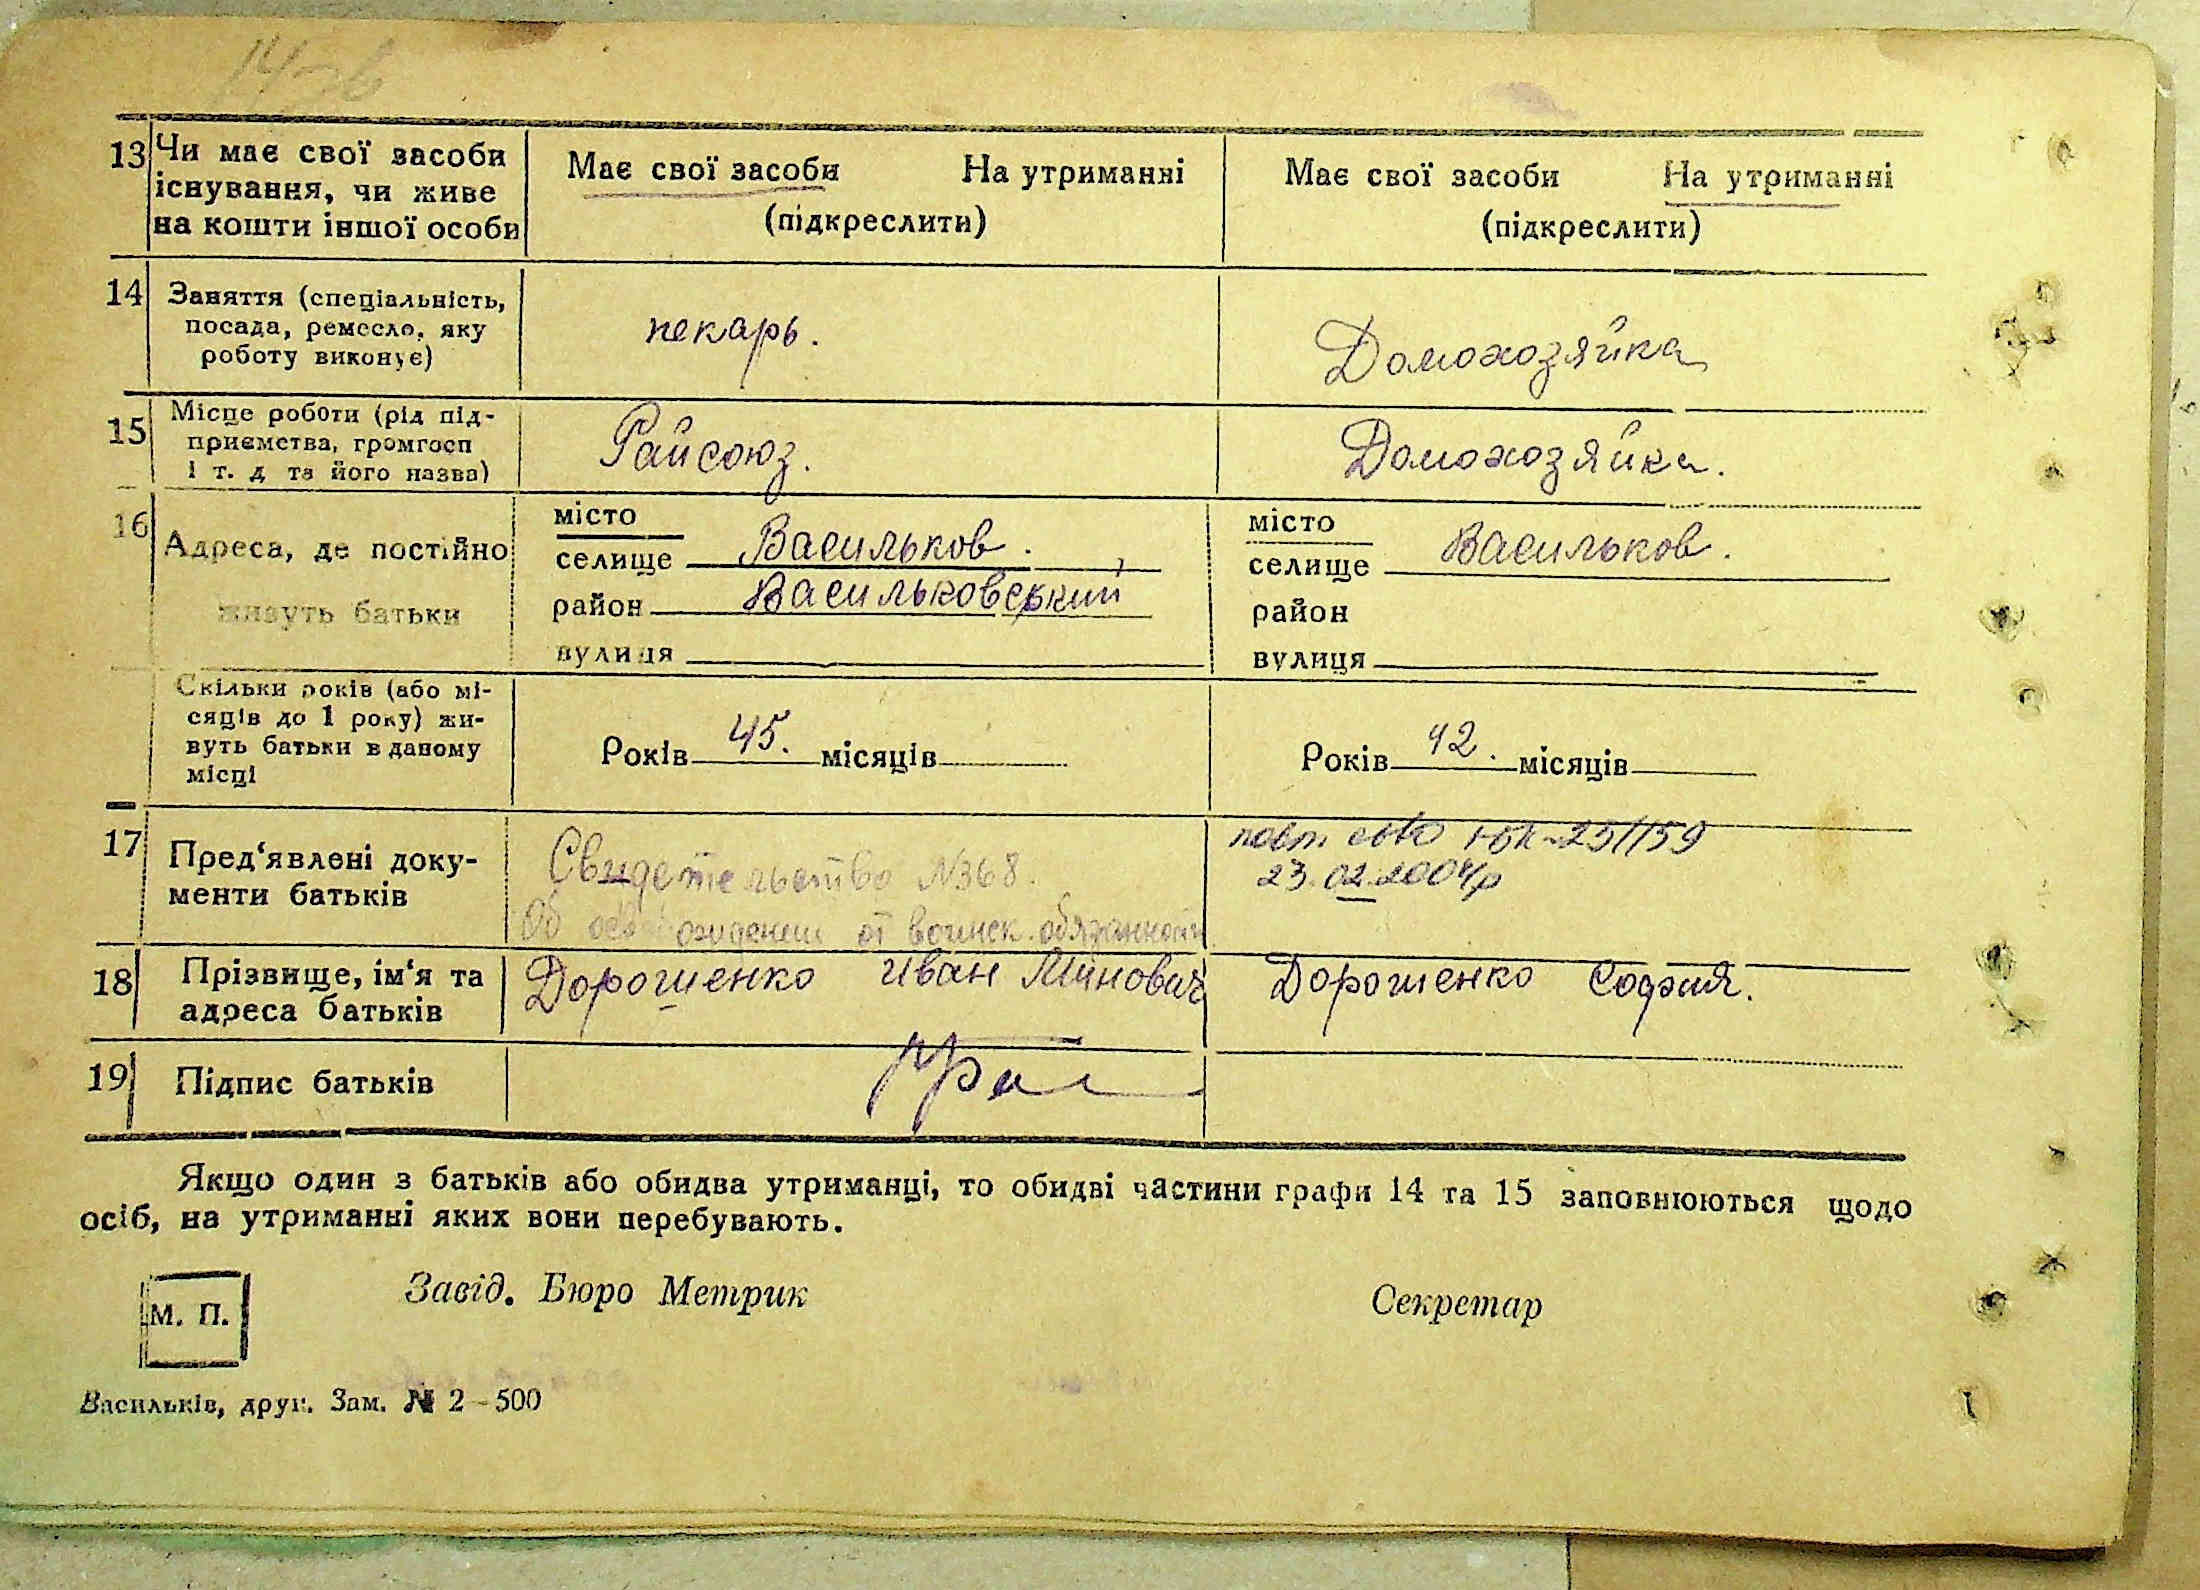 13 Чи має свої засоби існування, чи живе на кошти іншої особи
Має свої засоби На утриманні
(підкреслити)
Має свої засоби На утриманні
(підкреслити)
14 Заняття (спеціальність,
посада, ремесло, яку
роботу виконує)
пекарь.
Домохозяйка
15 Місце роботи (рід під-
приємства, громгосп
і т. д та його назва)
Райсоюз.
Домохозяйка.
16 Адреса, де постійно
живуть батьки
місто
селище Васильков.
район Васильковский
вулиця
місто
селище Васильков.
район
вулиця
Скільки років (або мі-
сяців до 1 року) жи-
вуть батьки в даному
місці
Років 45. місяців
Років 42. місяців
17 Пред‘явлені доку-
менти батьків
Свидетельство №368.
Об освобождении от воинск. обязанности
23.02.2004р
18 Прізвище, ім‘я та
адреса батьків
Дорошенко Иван Минович
Дорошенко София.
19 Підпис батьків
Якщо один з батьків або обидва утриманці, то обидві частини графи 14 та 15 заповнюються щодо
осіб, на утриманні яких вони перебувають.
М. П.
Завід. Бюро Метрик
Секретар
Васильків, друк. Зам. № 2-500